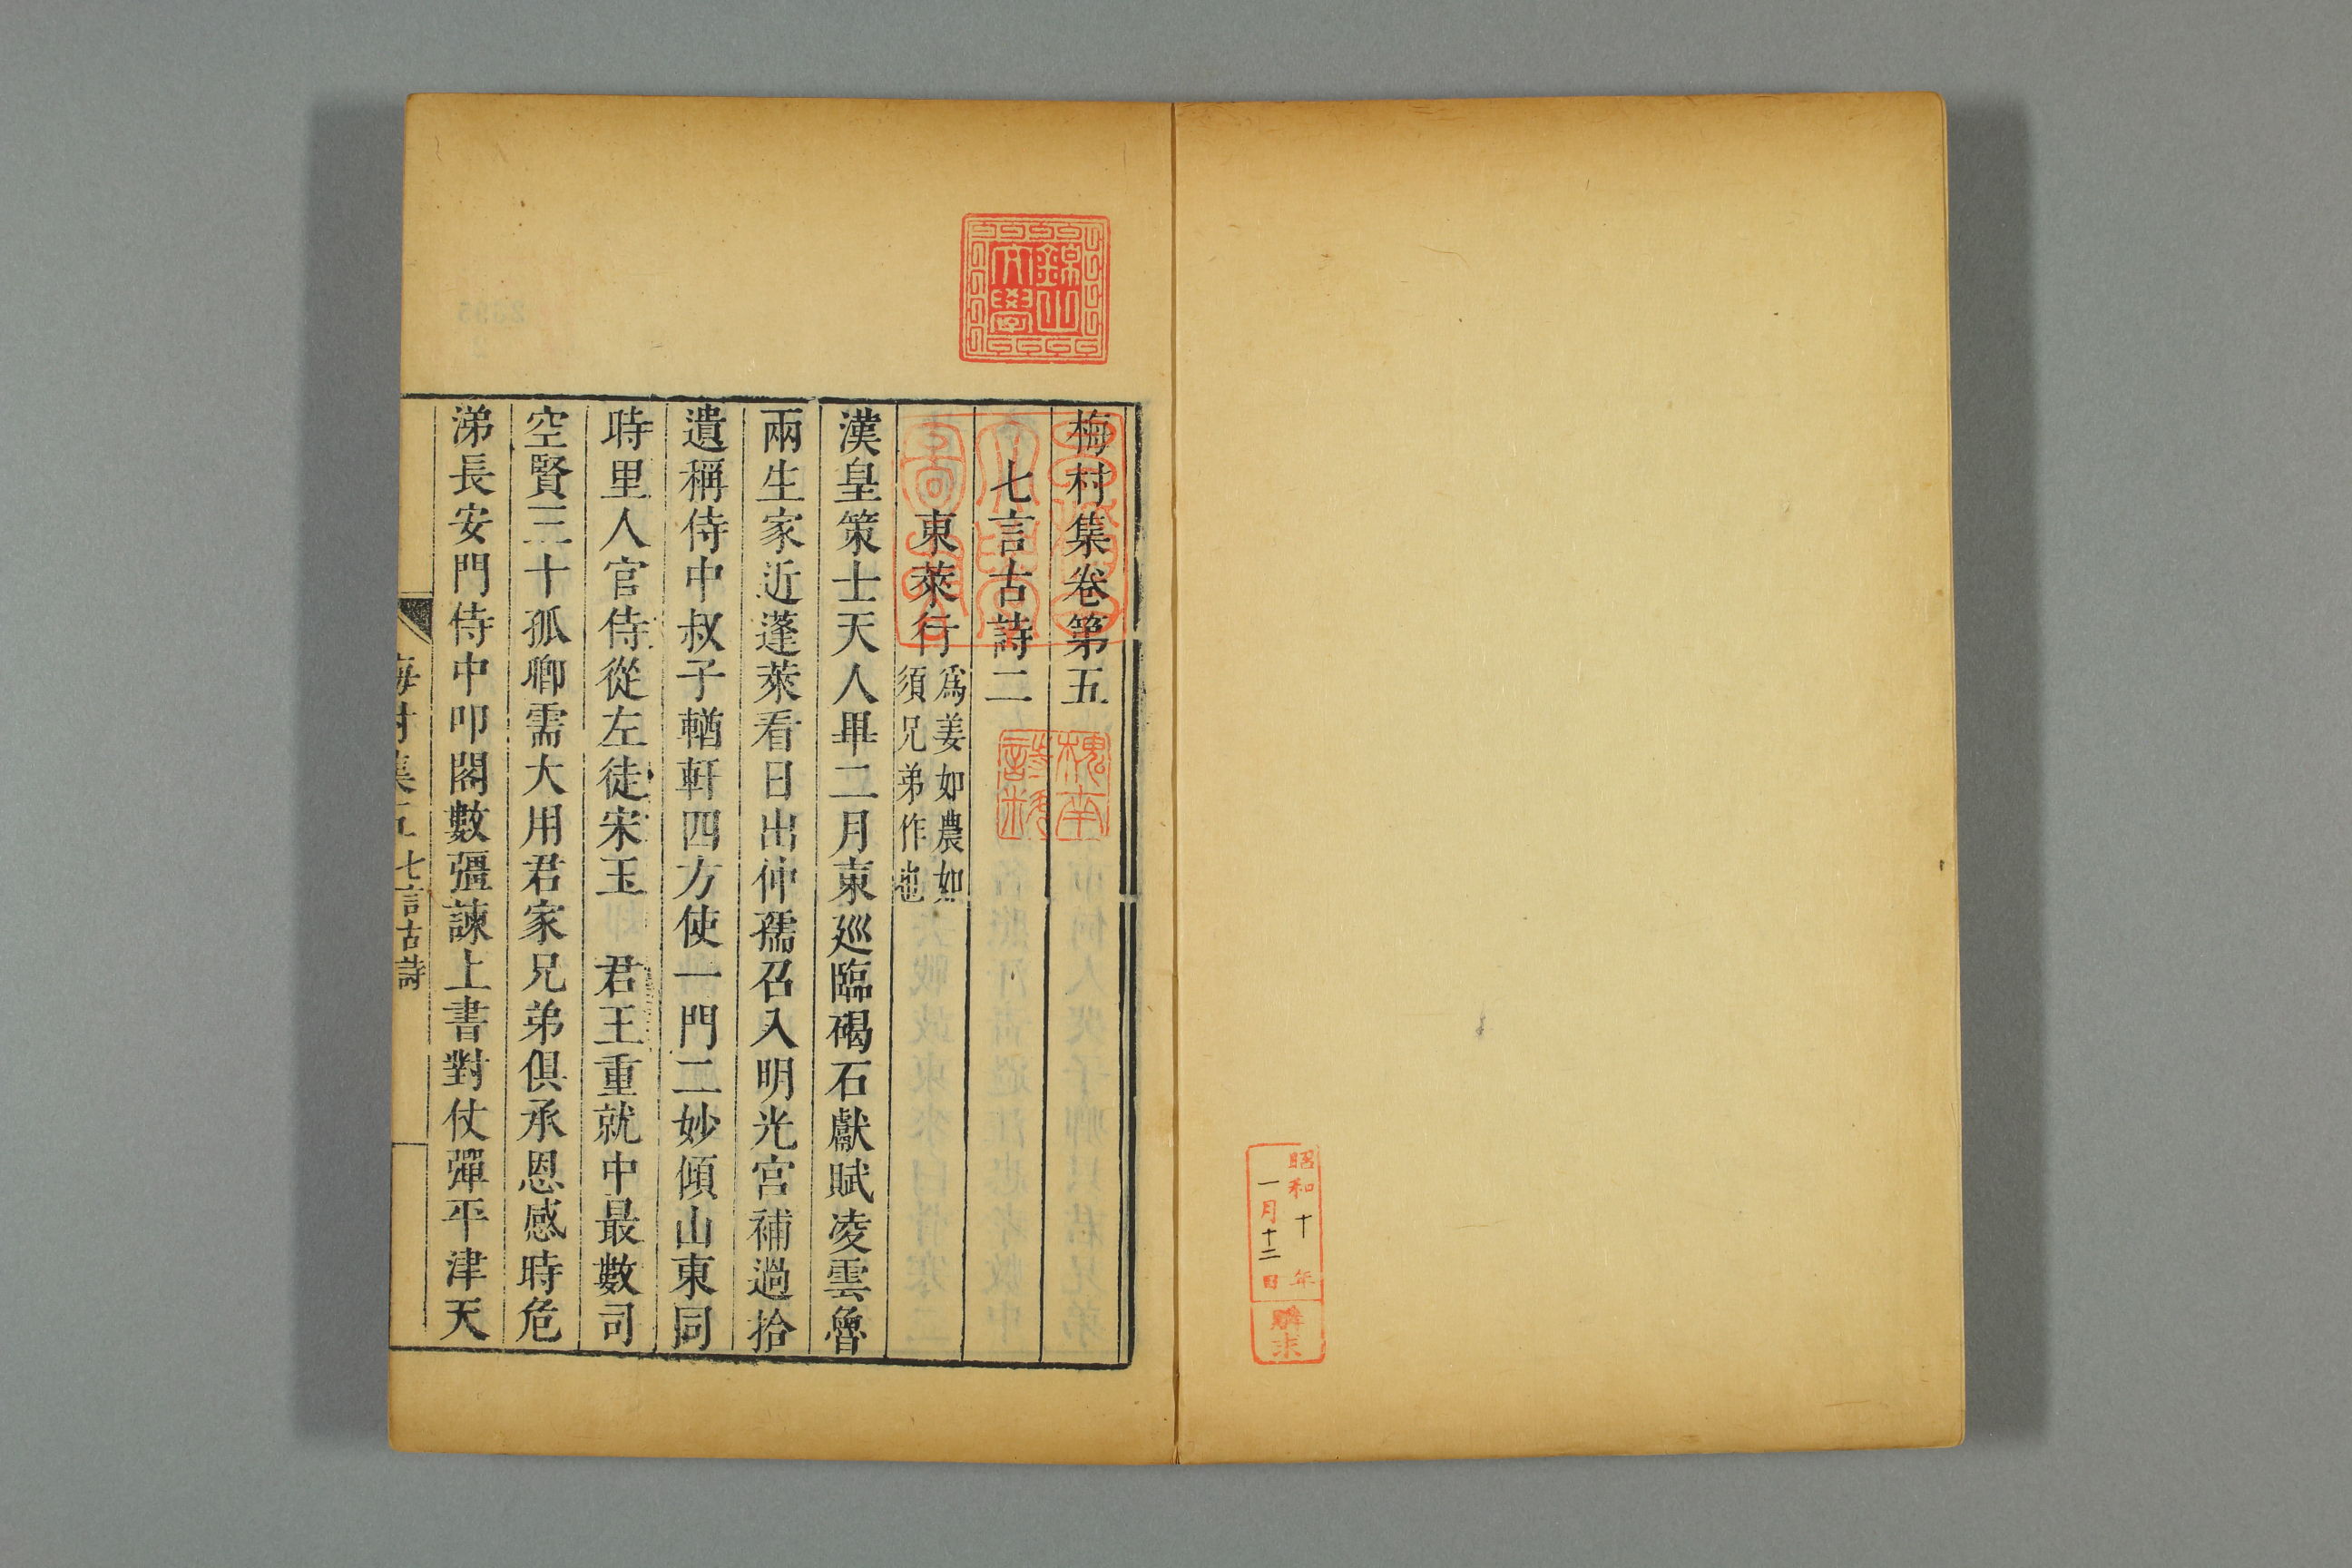 昭和十年
一月十二日
購求
錦山
文學
梅村集卷第五
七言古詩二
槐南
詩料
東萊行爲姜如農如
須兄弟作也
漢皇策士天人畢二月東廵臨碣石獻賦凌雲魯
兩生家近蓬萊看日出仲孺召入明光宮補過拾
遺稱侍中叔子輶軒四方使一門二妙傾山東同
時里人官侍從左徒宋玉君王重就中最數司
空賢三十孤卿需大用君家兄弟俱承恩感時危
涕長安門侍中叩閤數彊諫上書對仗彈平津天
梅村集五 七言古詩